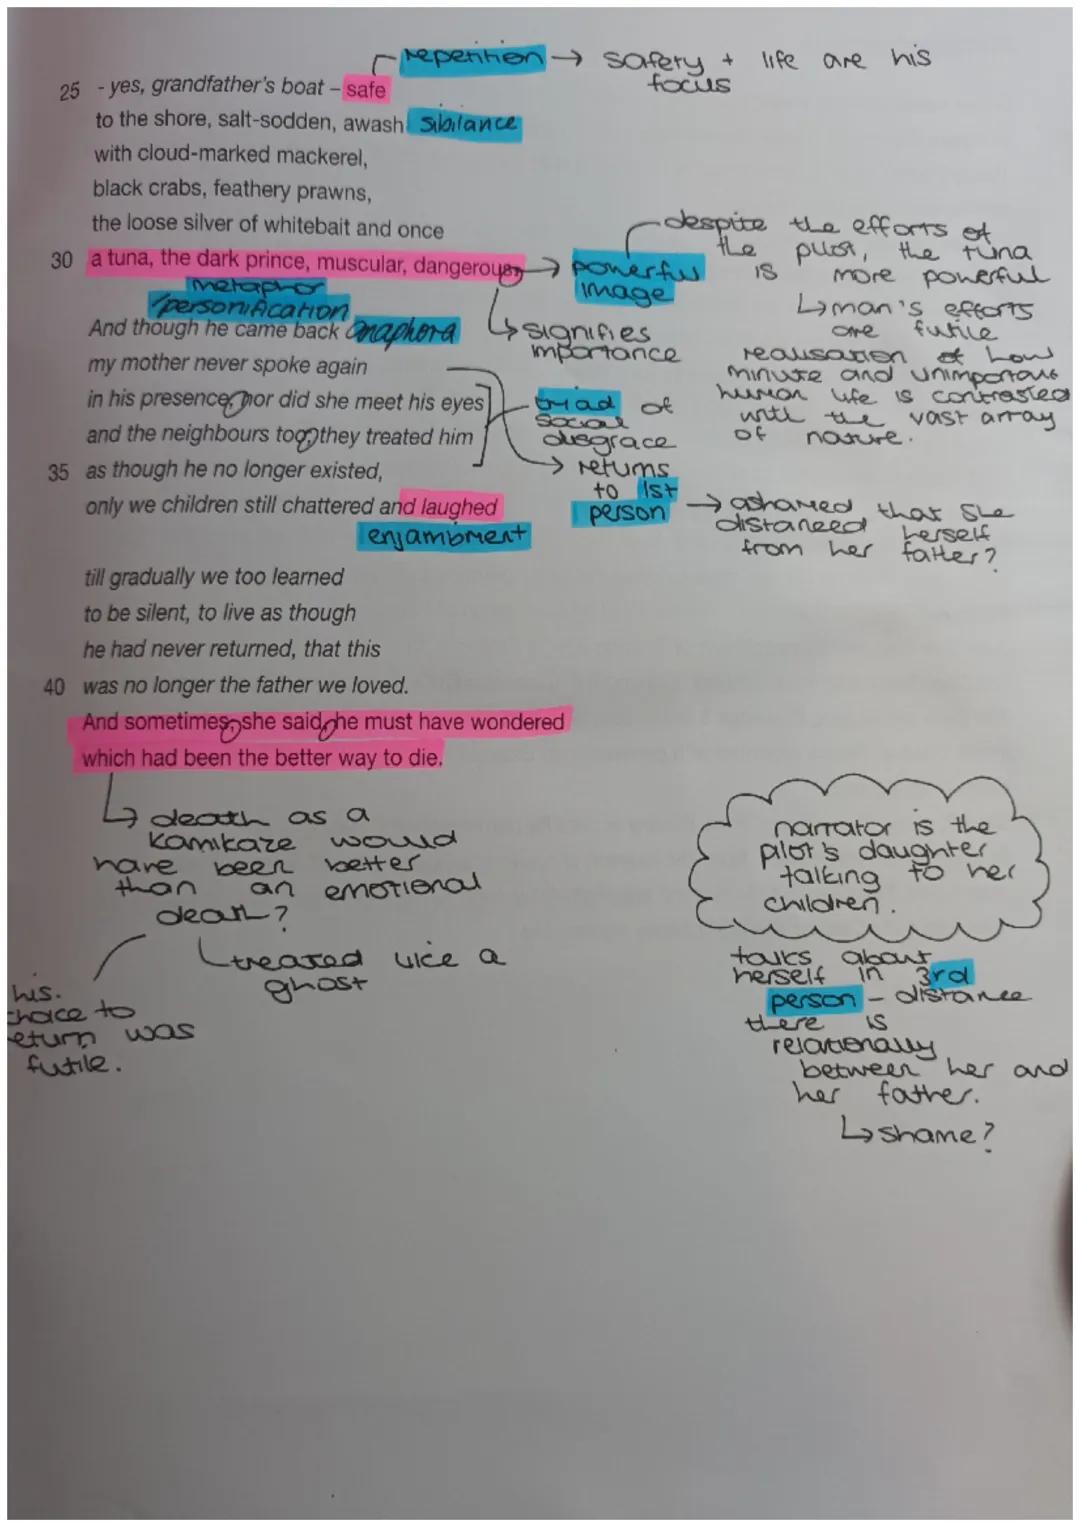 repetition → safety + life are his
focus
25 - yes, grandfather's boat – safe
to the shore, salt-sodden, awash sibilance
with cloud-marked mackerel,
black crabs, feathery prawns,
the loose silver of whitebait and once
30 a tuna, the dark prince, muscular, dangerous.
metaphor
/personification
→ powerful
image
despite the efforts of
the pilot, the tuna
is more powerful
↳ man's efforts
are futile
realisation of how
minute and unimportant
human life is contrasted
with the vast array
of nature.
↳ signifies
importance
And though he came back anaphora
my mother never spoke again
in his presence, nor did she meet his eyes
and the neighbours too, they treated him
35 as though he no longer existed,
only we children still chattered and laughed
enjambment
triad of
social
disgrace
→ returns
to 1st
person
→ ashamed that she
distanced herself
from her father?
till gradually we too learned
to be silent, to live as though
he had never returned, that this
40 was no longer the father we loved.
And sometimes, she said, he must have wondered
which had been the better way to die.
↳ death as a
kamikaze would
have been better
than an emotional
death?
treated like a
ghost
his
choice to
return was
futile.
narrator is the
pilot's daughter
talking to her
children.
talks about
herself in 3rd
person - distance
there is
relationally
between her and
her father.
↳ shame?